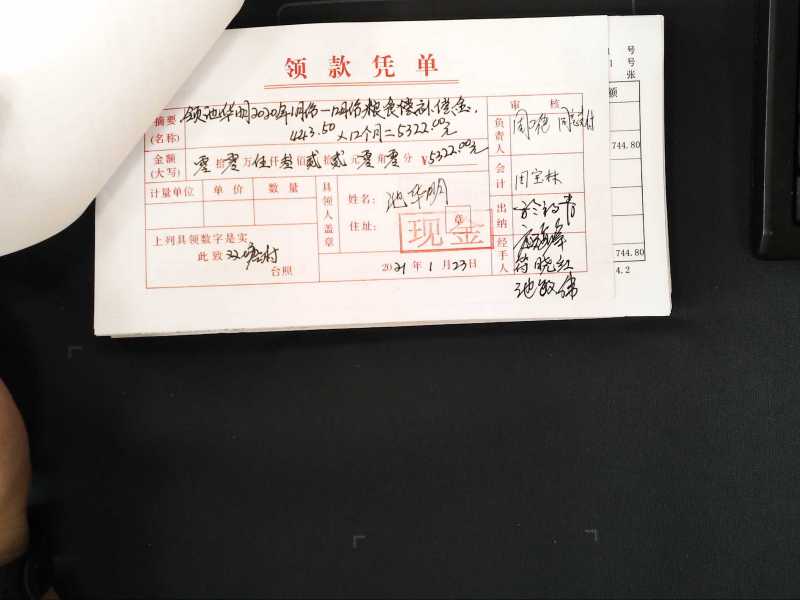 领款凭单
摘要(名称) 领池华明2020年1月份-12月份粮食偿补偿金,
443.50×12个月=5322.00元
金额(大写) 零拾零万伍仟叁佰贰拾贰元零角零分 ¥5322.00元
计量单位 单价 数量
具领人盖章
姓名: 池华明
住址:
章
现金
上列具领数字是实
此致 双塘村
台照
2021年1月23日
审核
负责人
会计 周宝林
出纳
经手人
符晓红
池政伟
号
号
张
额
744.80
744.80
4.2